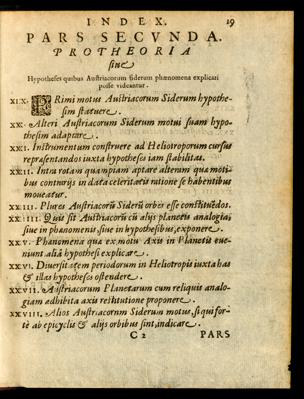 INDEX. 19
PARS SECVNDA.
PROTHEORIA
siue
Hypotheses quibus Austriacorum siderum phænomena explicari
posse videantur.
XIX. PRimi motus Austriacorum Siderum hypothe-
sim statuere.
XX. Alteri Austriacorum Siderum motui suam hypo-
thesim adaptare.
XXI. Instrumentum construere ad Heliotroporum cursus
repræsentandos iuxta hypotheses iam stabilitas.
XXII. Intra rotam quampiam aptare alteram quæ moti-
bus contrarijs in data celeritatis ratione se habentibus
moueatur.
XXIII. Plures Austriacorū Siderū orbes esse constituēdos.
XXIIII. Quis sit Austriacorū cū alijs planetis analogia,
siue in phænomenis siue in hypothesibus, exponere.
XXV. Phænomena quæ ex motu Axis in Planetis eue-
niunt aliâ hypothesi explicare.
XXVI. Diuersitatem periodorum in Heliotropijs iuxta has
& illas hypotheses ostendere.
XXVII. Austriacorum Planetarum cum reliquis analo-
giam adhibita axis restitutione proponere.
XXVIII. Alios Austriacorum Siderum motus, si qui for-
tè ab epicyclis & alijs orbibus sint, indicare.
C 2 PARS